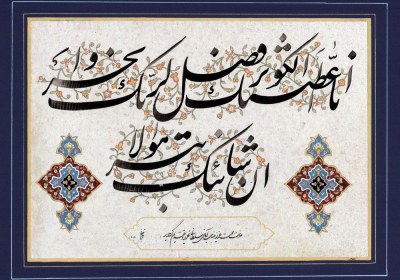 انّا اعطیناک الکوثر فصل لربّک وانحر
ان شانئک هو الابتر